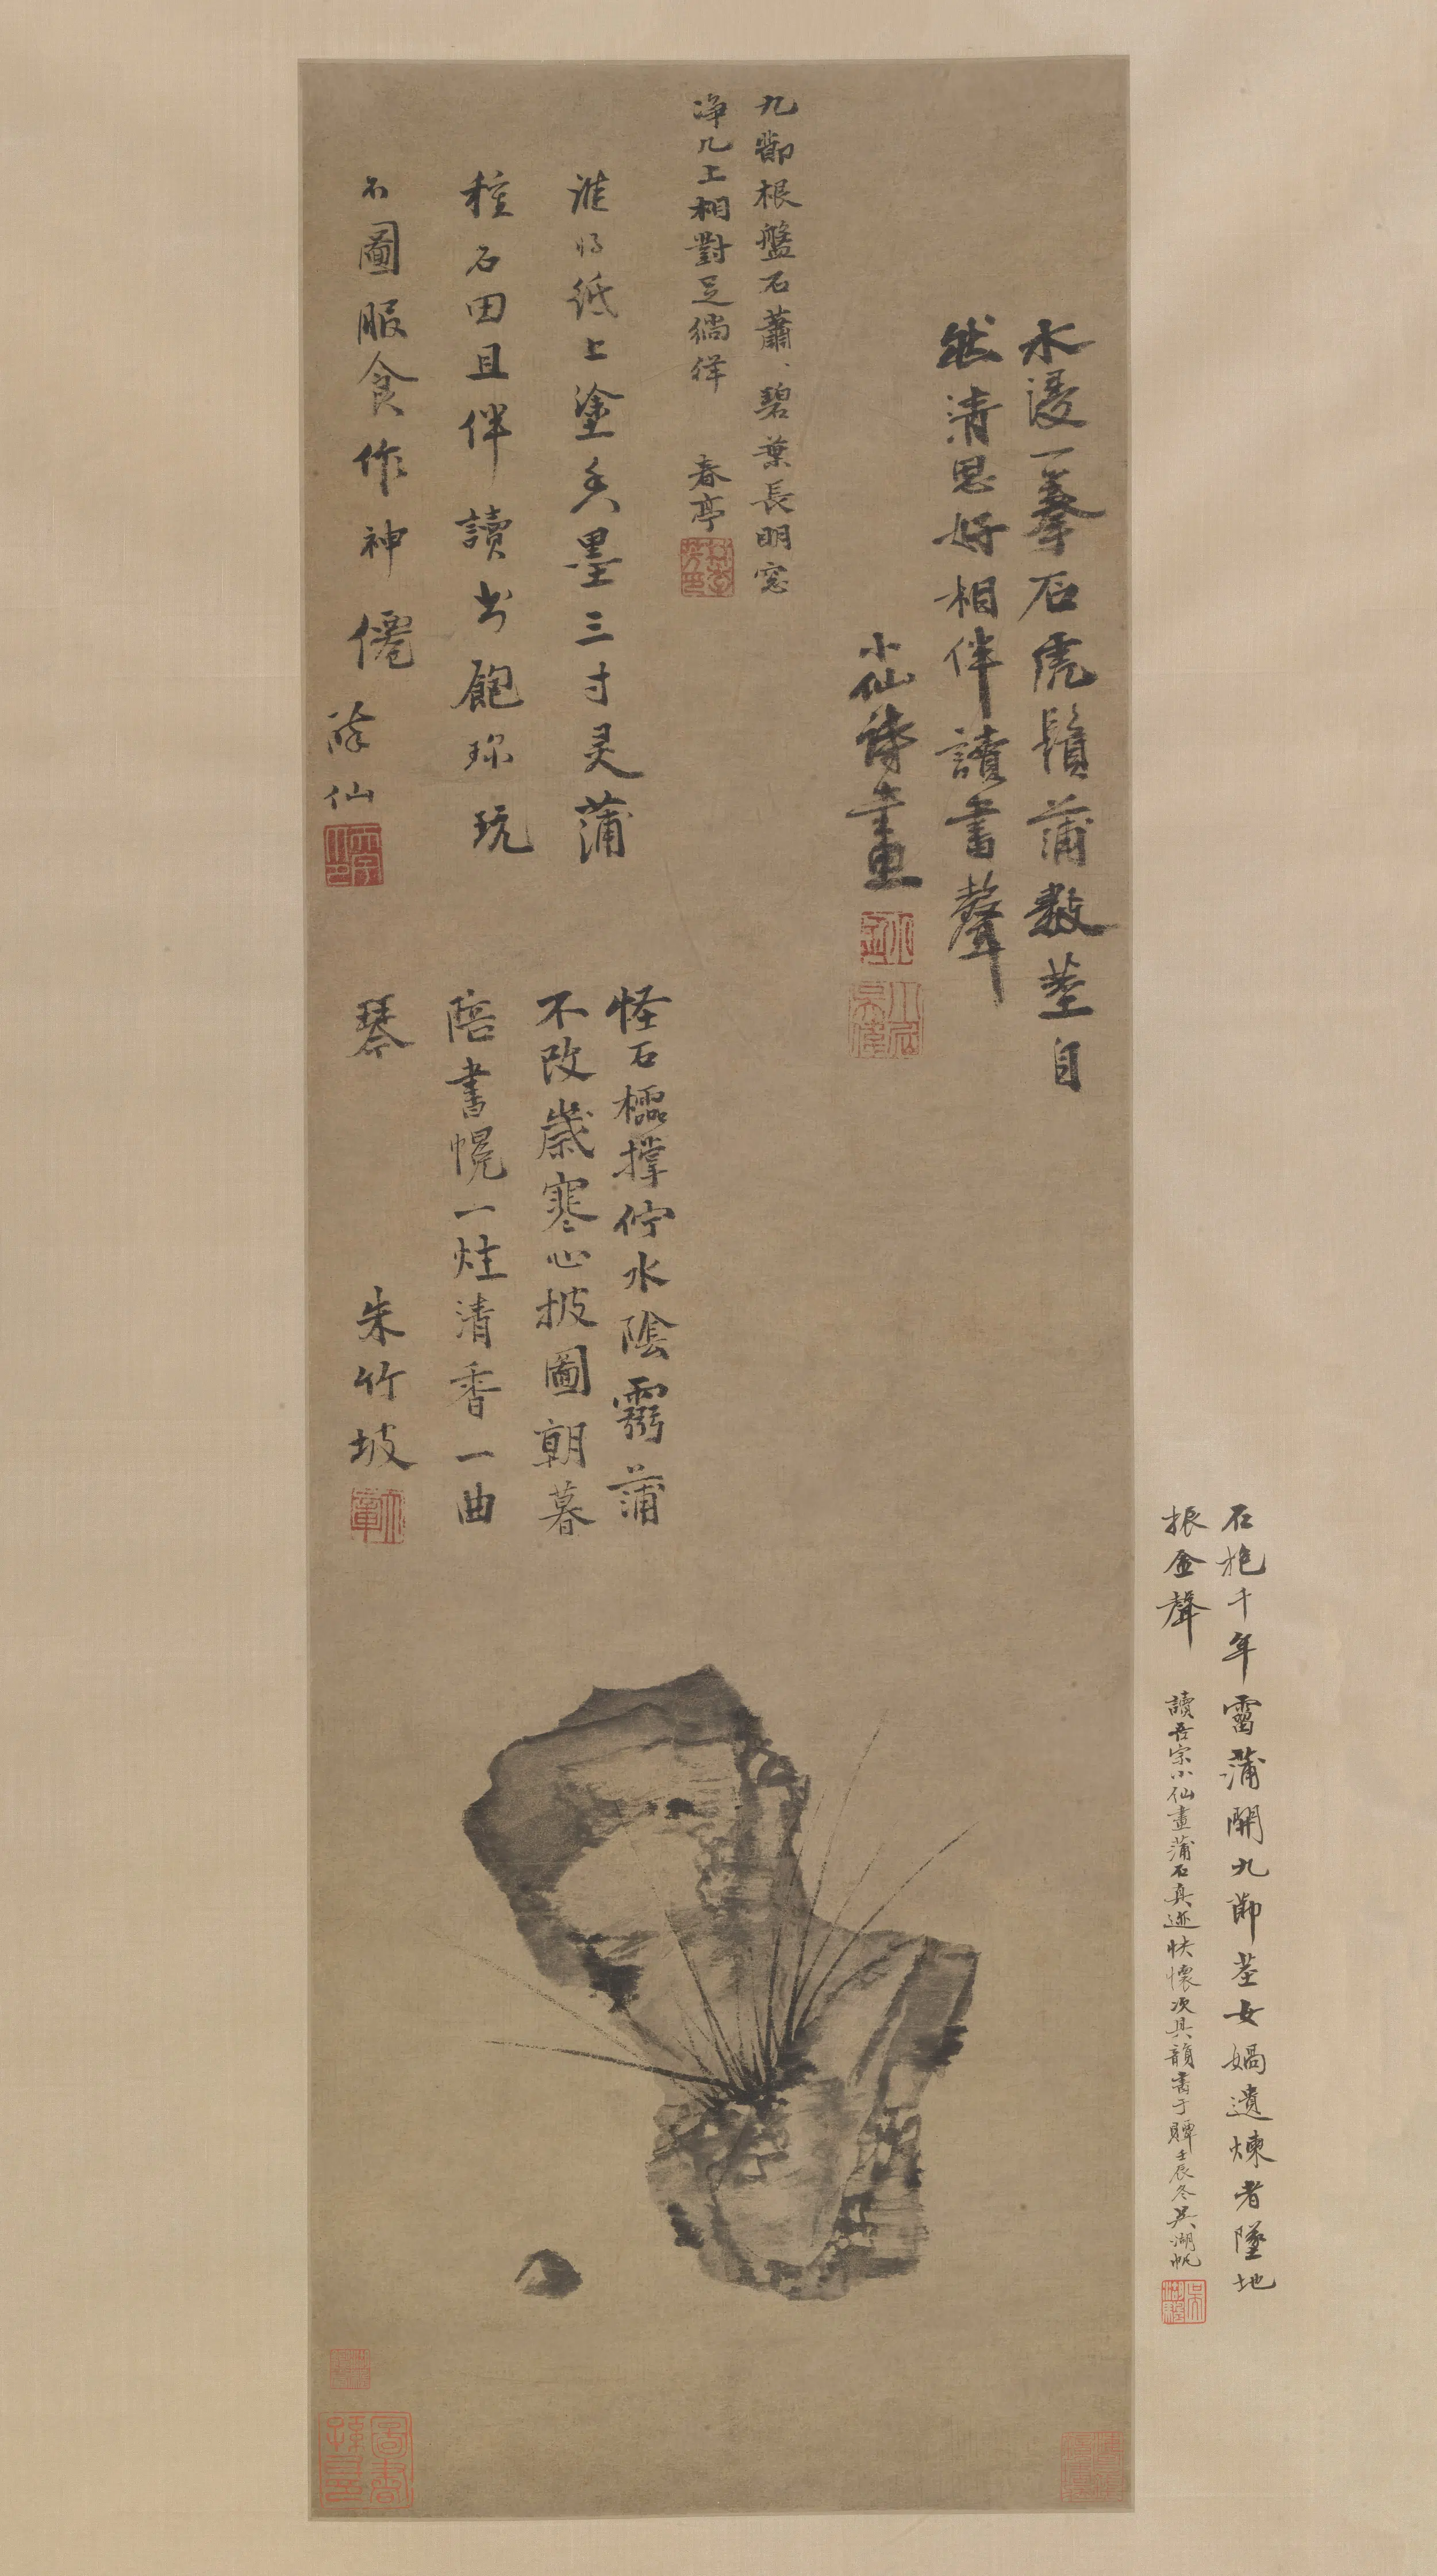 水浸一拳石虎鬚蒲數莖自
然清思好相伴讀書聲
小仙詩畫
九節根盤石蕭、碧葉長明窓
淨几上相對足徜徉 春亭
誰將紙上塗香墨三寸灵蒲
種石田且伴讀书飽珎玩
不圖服食作神僊 薛仙
怪石櫺撑佇水陰靈蒲
不改歲寒心披圖朝暮
陪書幌一炷清香一曲
琴 朱竹坡
石抱千年雷蒲開九節莖女媧遺煉者墜地
振金聲 讀吾宗小仙畫蒲石真迹快懷次其韻書于䩠壬辰冬吳湖帆